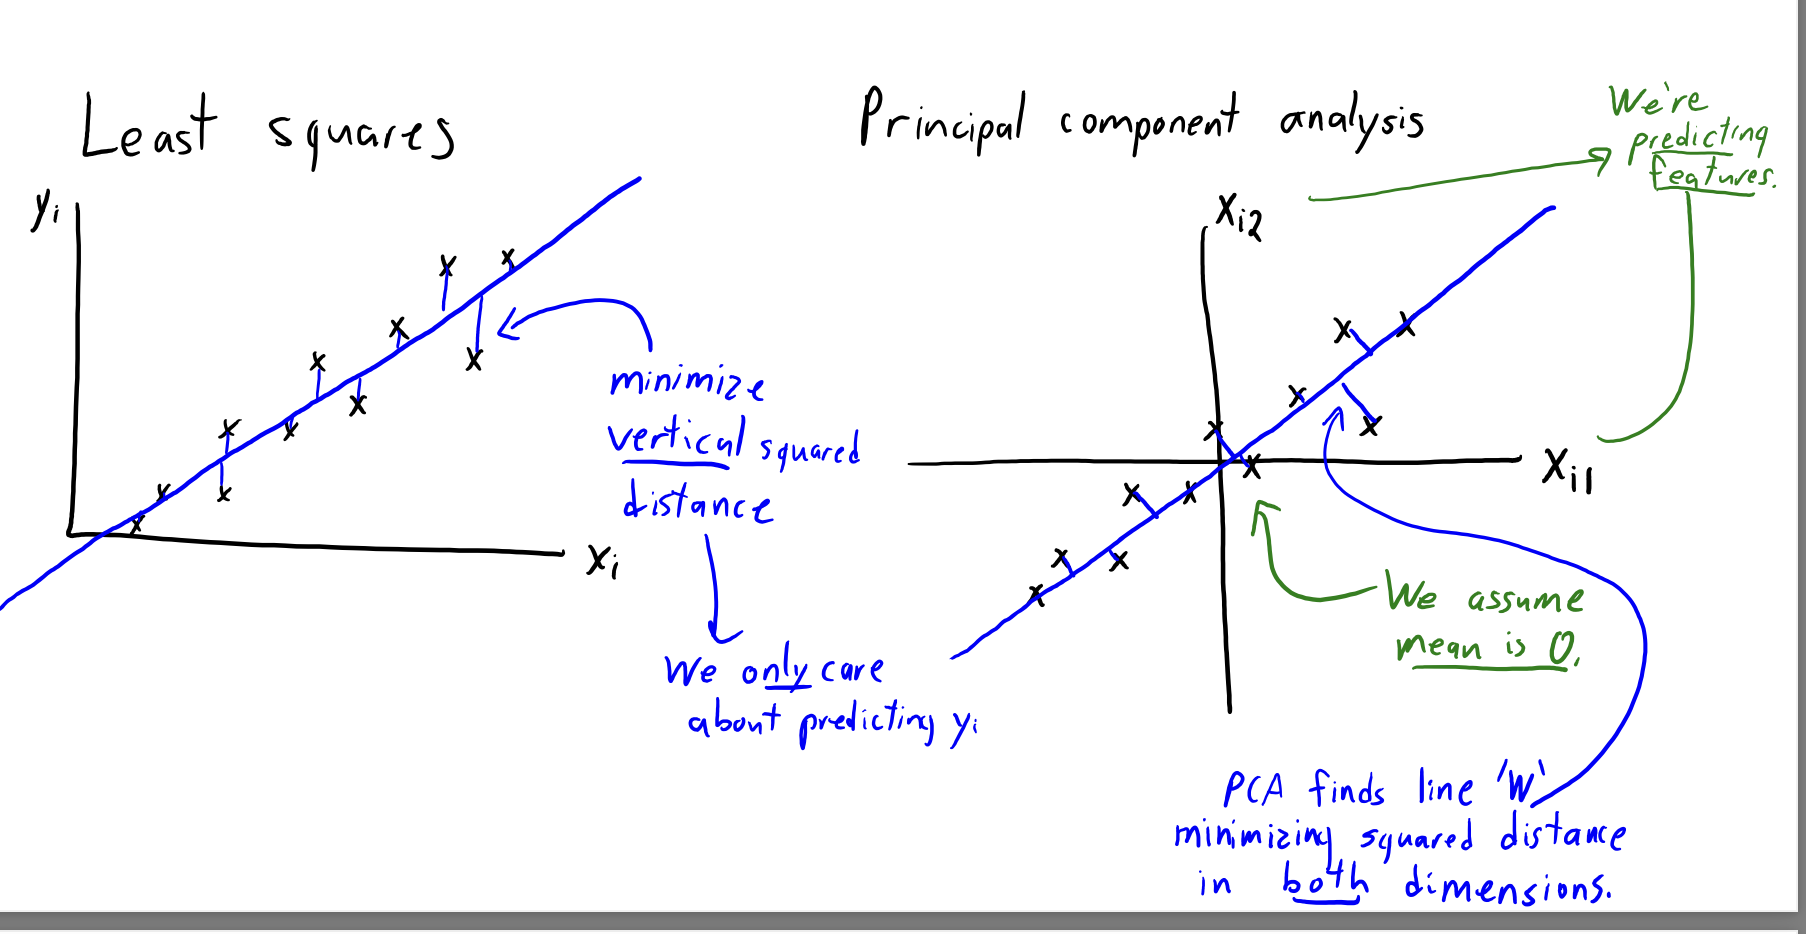 Least squares
yi
xi
minimize
vertical squared
distance
We only care
about predicting yi
Principal component analysis
We're
predicting
features.
xi2
xi1
We assume
mean is 0.
PCA finds line 'W'
minimizing squared distance
in both dimensions.